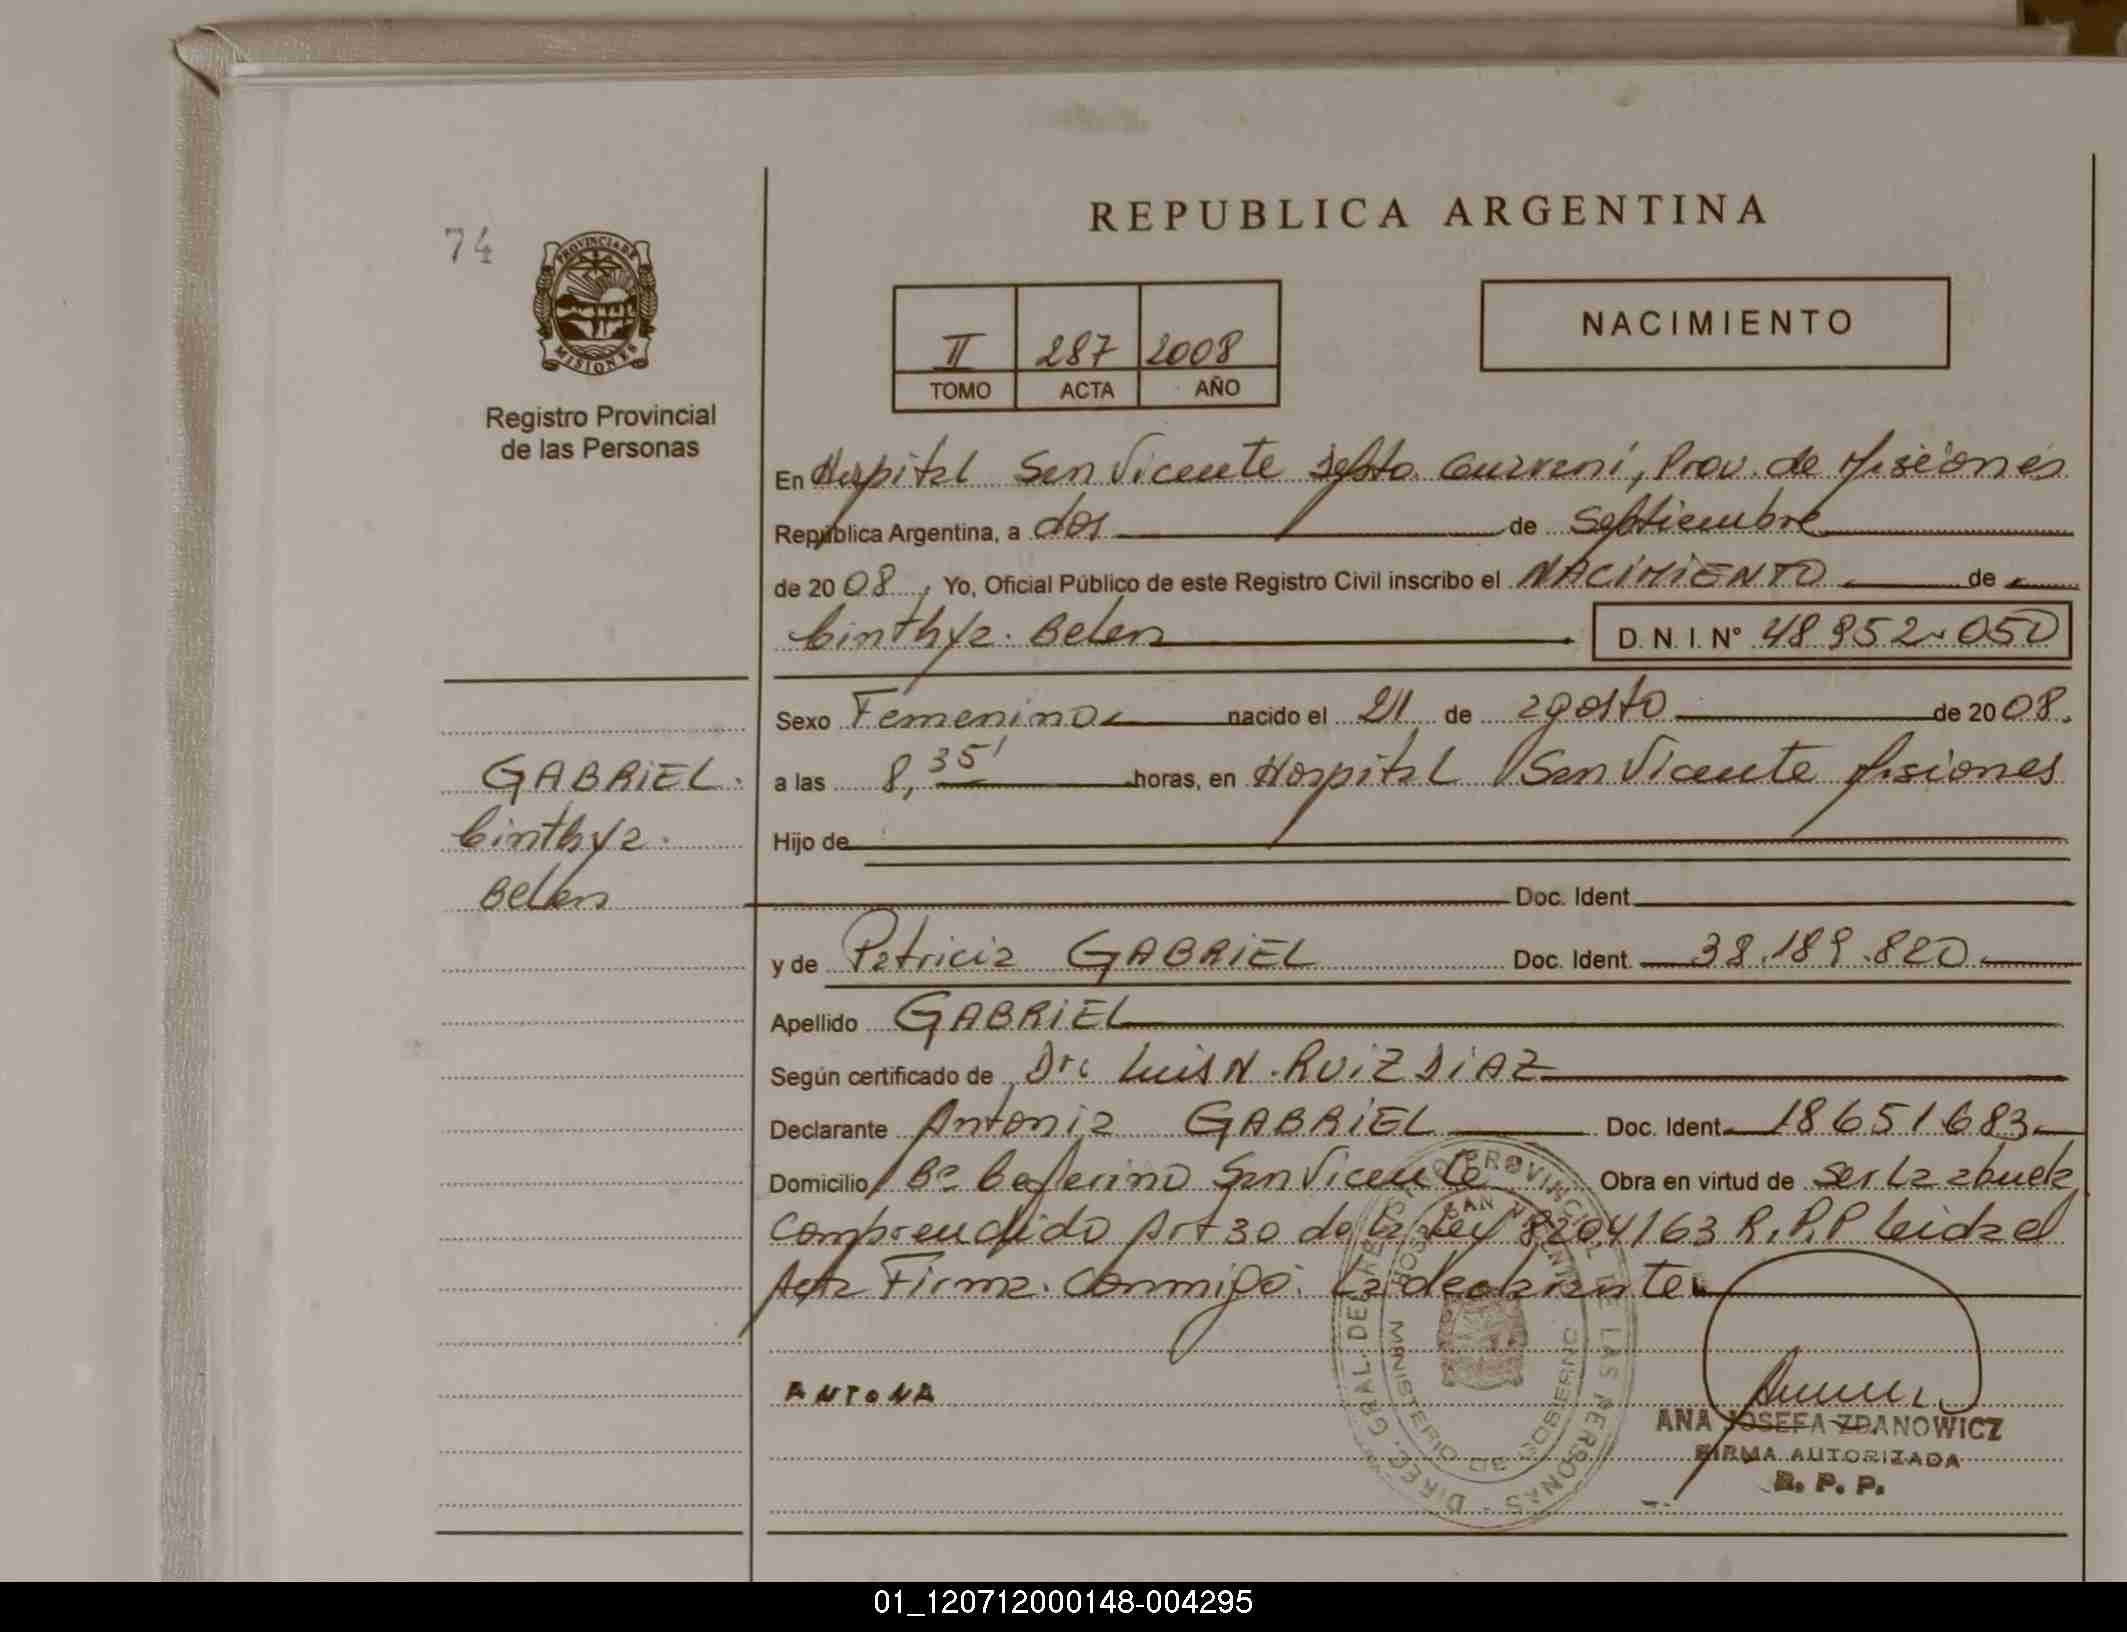 REPUBLICA ARGENTINA
74
PROVINCIA DE
MISIONES
Registro Provincial
de las Personas
II 287 2008
TOMO ACTA AÑO
NACIMIENTO
En Hospital San Vicente Depto. Guarani, Prov. de Misiones
República Argentina, a dos de Septiembre
de 20 08, Yo, Oficial Público de este Registro Civil inscribo el NACIMIENTO de
Cinthya Belen D. N. I. N° 48 952.050
Sexo Femenino nacido el 21 de agosto de 20 08.
a las 8,35' horas, en Hospital San Vicente Misiones
Hijo de
Doc. Ident.
y de Patricia GABRIEL Doc. Ident. 38.189.820
Apellido GABRIEL
Según certificado de Dr. Luis N. RUIZ DIAZ
Declarante Antonia GABRIEL Doc. Ident. 18651683
Domicilio B° Ceferino San Vicente Obra en virtud de ser la abuela
Comprendido Art 30 de la Ley 8204/63 R.P.P Leida el
Acta Firma Conmigo La declarante
GABRIEL
Cinthya
Belen
ANTONA
DIREC. GRAL. DE REGISTRO PROVINCIAL DE LAS PERSONAS
HOSP. SAN VICENTE
MINISTERIO DE GOBIERNO
ANA JOSEFA ZDANOWICZ
FIRMA AUTORIZADA
R. P. P.
01_120712000148-004295